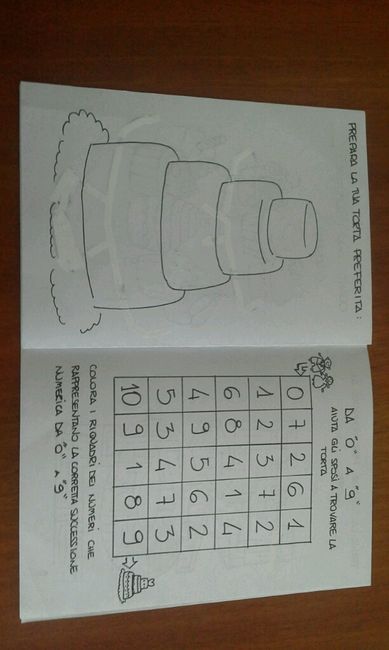 PREPARA LA TUA TORTA PREFERITA:
DA "0" A "9"
AIUTA GLI SPOSI A TROVARE LA
TORTA
0 7 2 6 1
1 2 3 7 2
6 8 4 1 4
4 9 5 6 2
5 3 4 7 3
10 9 1 8 9
COLORA I RIQUADRI DEI NUMERI CHE
RAPPRESENTANO LA CORRETTA SUCCESSIONE
NUMERICA DA "0" A "9"